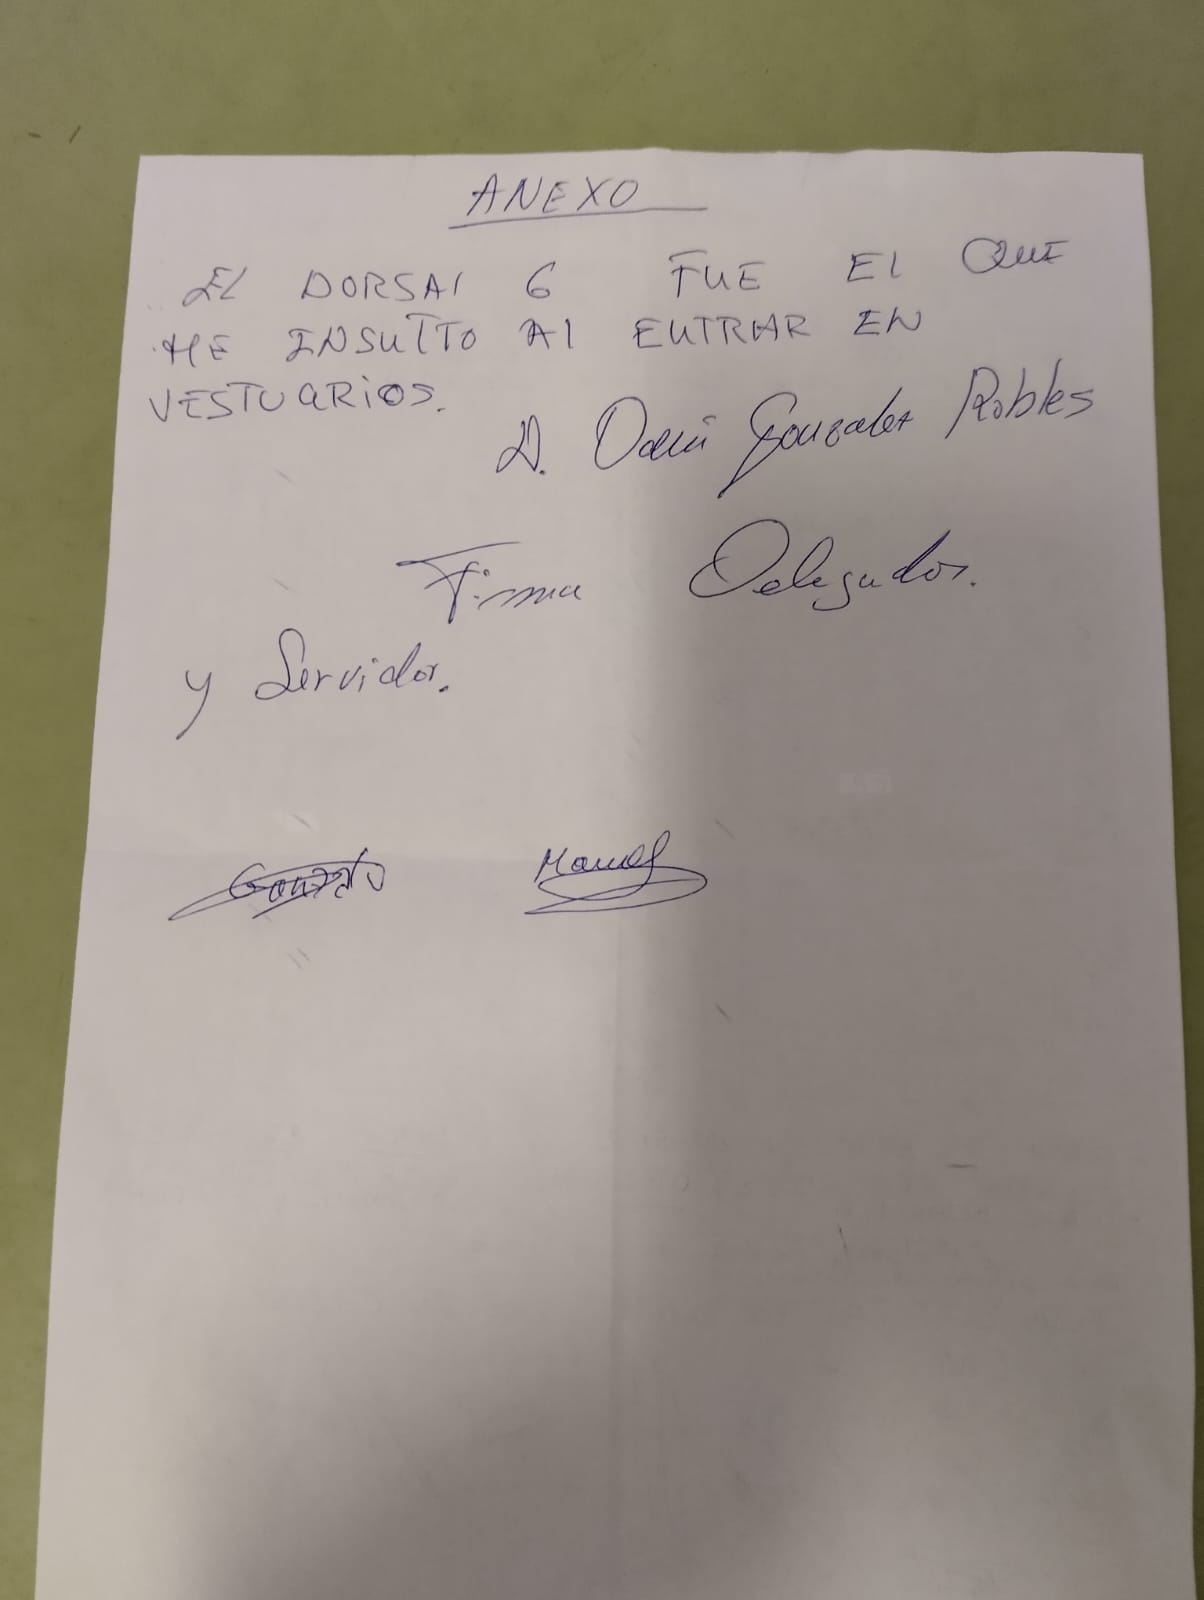 ANEXO
EL DORSAL 6 FUE EL QUE
ME INSULTO AL ENTRAR EN
VESTUARIOS.
D. Gonzalez Robles
Firma Delegados.
y Servidor.
Gonzalo Manuel